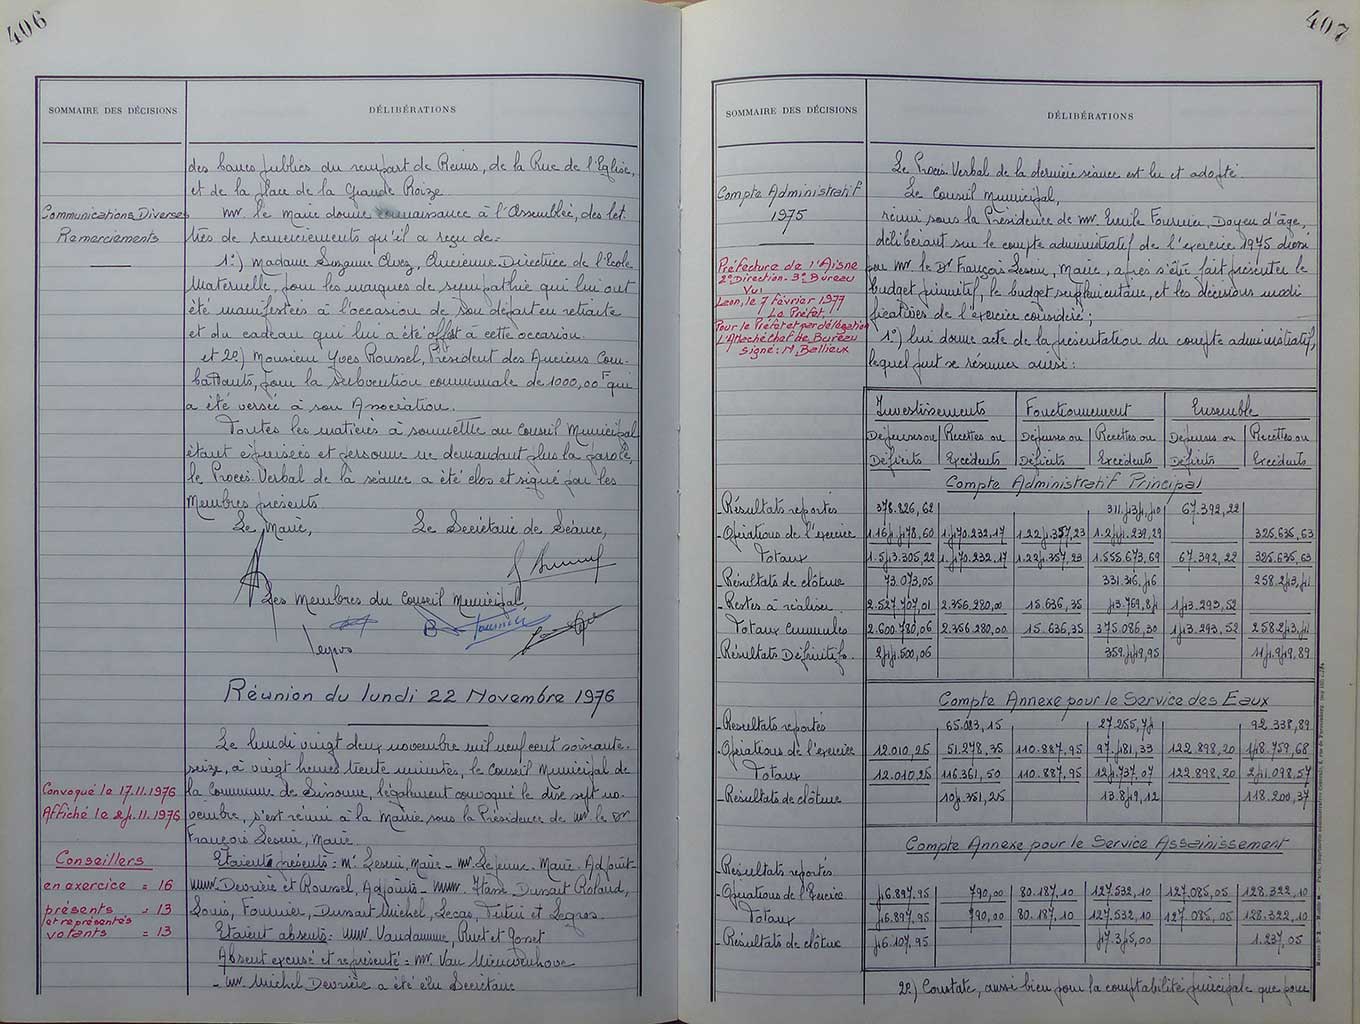 406
SOMMAIRE DES DÉCISIONS
DÉLIBÉRATIONS
des bancs publics du rempart de Reims, de la Rue de l'Eglise,
et de la place de la Grande Roize.
Communications Diverses
Remerciements
Mr. le Maire donne connaissance à l'Assemblée, des let
tres de remerciements qu'il a reçu de:
1°) Madame Suzanne Ancienne Directrice de l'Ecole
Maternelle, pour les marques de sympathie qui lui ont
été manifestées à l'occasion de son départ en retraite
et du cadeau qui lui a été offert à cette occasion.
et 2e) Monsieur Yves Roussel, Président des Anciens Com-
battants, pour la subvention communale de 1000,00F qui
a été versée à son Association.
Toutes les matières à soumettre au Conseil Municipal
étant épuisées et personne ne demandant plus la parole,
le Procès-Verbal de la séance a été clos et signé par les
Membres présents.
Le Maire,
Le Secrétaire de Séance,
Les Membres du Conseil Municipal,
Réunion du lundi 22 Novembre 1976
Le lundi vingt deux novembre mil neuf cent soixante-
seize, à vingt heures trente minutes, le Conseil Municipal de
Convoqué le 17.11.1976
la commune de Sissonne, légalement convoqué le dix sept no-
Affiché le 24.11.1976
vembre, s'est réuni à la Mairie sous la Présidence de Mr. le Dr
François Maire.
Conseillers
en exercice = 16
présents = 13
et représentés
votants = 13
Etaient présents: Mr Maire - Mr. Lejeune Maire-Adjoint-
MM. Devrière et Roussel, Adjoints - MM. Dussart Roland,
Louis, Fournier, Dussart Michel, Lecas, et Legros.
Etaient absents: MM. Vandamme, et
Absent excusé et représenté = Mr. Van Nieuwenhove
- Mr. Michel Devrière a été élu Secrétaire
407
SOMMAIRE DES DÉCISIONS
DÉLIBÉRATIONS
Le Procès-Verbal de la dernière séance est lu et adopté.
Compte Administratif
1975
Le Conseil Municipal,
réuni sous la Présidence de Mr. Emile Fournier, Doyen d'âge,
délibérant sur le compte administratif de l'exercice 1975 dressé
Préfecture de l'Aisne
2e Direction. 3e Bureau
Vu:
Laon, le 7 février 1977
Le Préfet.
Pour le Préfet et par délégation
L'Attaché Chef de Bureau
signé: N. Bellieux
par Mr. le Dr François Maire, après s'être fait présenter le
budget primitif, le budget supplémentaire, et les décisions modi
ficatives de l'exercice considéré;
1°) lui donne acte de la présentation du compte administratif,
lequel peut se résumer ainsi:
Investissements Fonctionnement Ensemble
Dépenses ou Recettes ou Dépenses ou Recettes ou Dépenses ou Recettes ou
Déficits Excédents Déficits Excédents Déficits Excédents
Compte Administratif Principal
- Résultats reportés 378.826,62 311.434,40 67.392,22
- Opérations de l'exercice 1.164.478,60 1.470.232,17 1.224.357,23 1.244.239,29 325.635,63
Totaux 1.543.305,22 1.470.232,17 1.224.357,23 1.555.673,69 67.392,22 325.635,63
- Résultats de clôture 73.073,05 331.316,46 258.243,41
- Restes à réaliser 2.527.707,01 2.356.280,00 15.636,35 43.769,84 143.293,52
Totaux Cumulés 2.600.780,06 2.356.280,00 15.636,35 375.086,30 143.293,52 258.243,41
- Résultats Définitifs. 244.500,06 359.449,95 114.949,89
Compte Annexe pour le Service des Eaux
- Résultats reportés 65.083,15 27.255,74 92.338,89
- Opérations de l'exercice 12.010,25 51.278,35 110.887,95 97.481,33 122.898,20 148.759,68
Totaux 12.010,25 116.361,50 110.887,95 124.737,07 122.898,20 241.098,57
- Résultats de clôture 104.351,25 13.849,12 118.200,37
Compte Annexe pour le Service Assainissement
- Résultats reportés
- Opérations de l'Exercice 46.897,95 790,00 80.187,10 127.532,10 127.085,05 128.322,10
Totaux 46.897,95 790,00 80.187,10 127.532,10 127.085,05 128.322,10
- Résultats de clôture 46.107,95 47.345,00 1.237,05
2e) Constate, aussi bien pour la comptabilité principale que pour